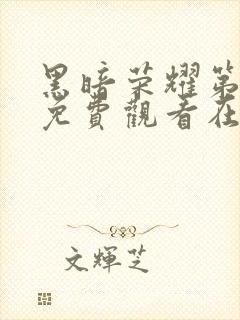 黑暗荣耀第
免費觀看在
文輝芝